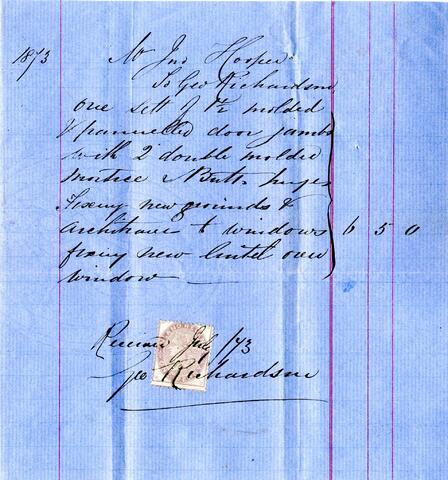 1873 Mr Jno Hooper
To Geo Richardson
one sett of 1½ molded
& pannelled door jambs
with 2 double molded
Butt hinges
Fixing new grounds &
Architrave to windows 6 5 0
fixing new lintel over
window
Received July /73
Geo Richardson